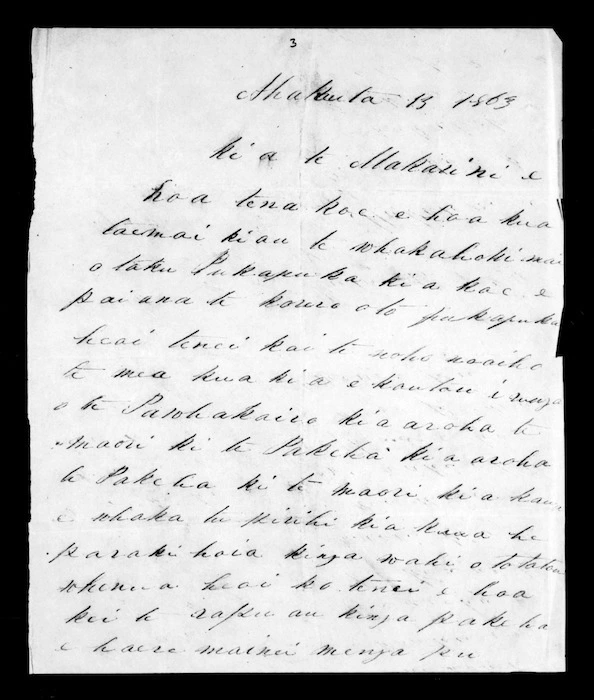 3
Ahakuta 13 1863
ki a te Makarini e
hoa tena koe e hoa kua
taemai ki au te whakahoki mai
o taku Pukapuka ki a koe e
pai ana te korero o to pukapuka
heoi tenei kai te noho noaiho
te mea kua kia e koutou i runga
o te Pawhakairo kia aroha te
maori ki te Pakeha kia aroha
te Pakeha ki te maori kia kaua
e whaka tu pirihi kia kaua he
paraki hoia kinga wahi o totatou
whenua heoi ko tenei e hoa
kei te rapu au kinga pakeha
e haere mainei menga pu